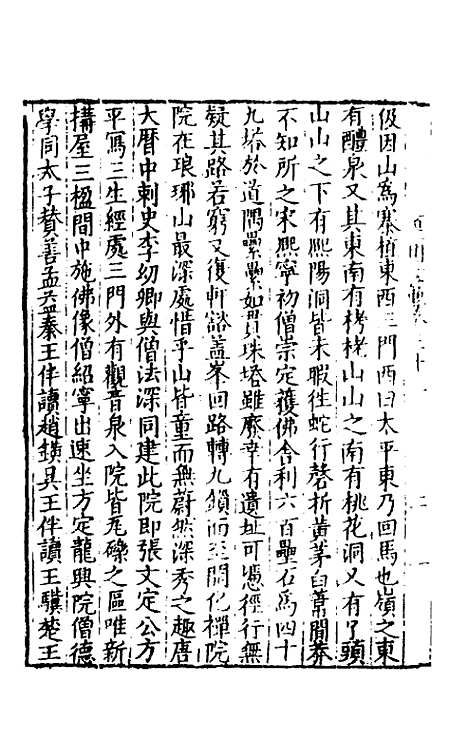 伋因山爲寨植東西三門西曰太平東乃回馬也嶺之東
有醴泉又其東南有栲栳山山之南有桃花洞又有了頭
山山之下有熙陽洞皆未暇徃蛇行磬折黃茅白葦間莽
不知所之宋熙寧初僧崇定獲佛舍利六百壘石爲四十
九塔於道隅纍纍如貫珠塔雖廢幸有遺址可慿徑行無
疑其路若窮又復軒豁葢峯回路轉九鎖而至開化禪院
院在琅琊山最深處惜乎山皆童而無蔚然深秀之趣唐
大曆中刺史李幼卿與僧法深同建此院即張文定公方
平寫三生經處三門外有觀音泉入院皆瓦礫之區唯新
搆屋三楹間中施佛像僧紹寧出速坐方定龍興院僧德
學同太子贊善孟益秦王伴讀趙鏌吳王伴讀王驥楚王